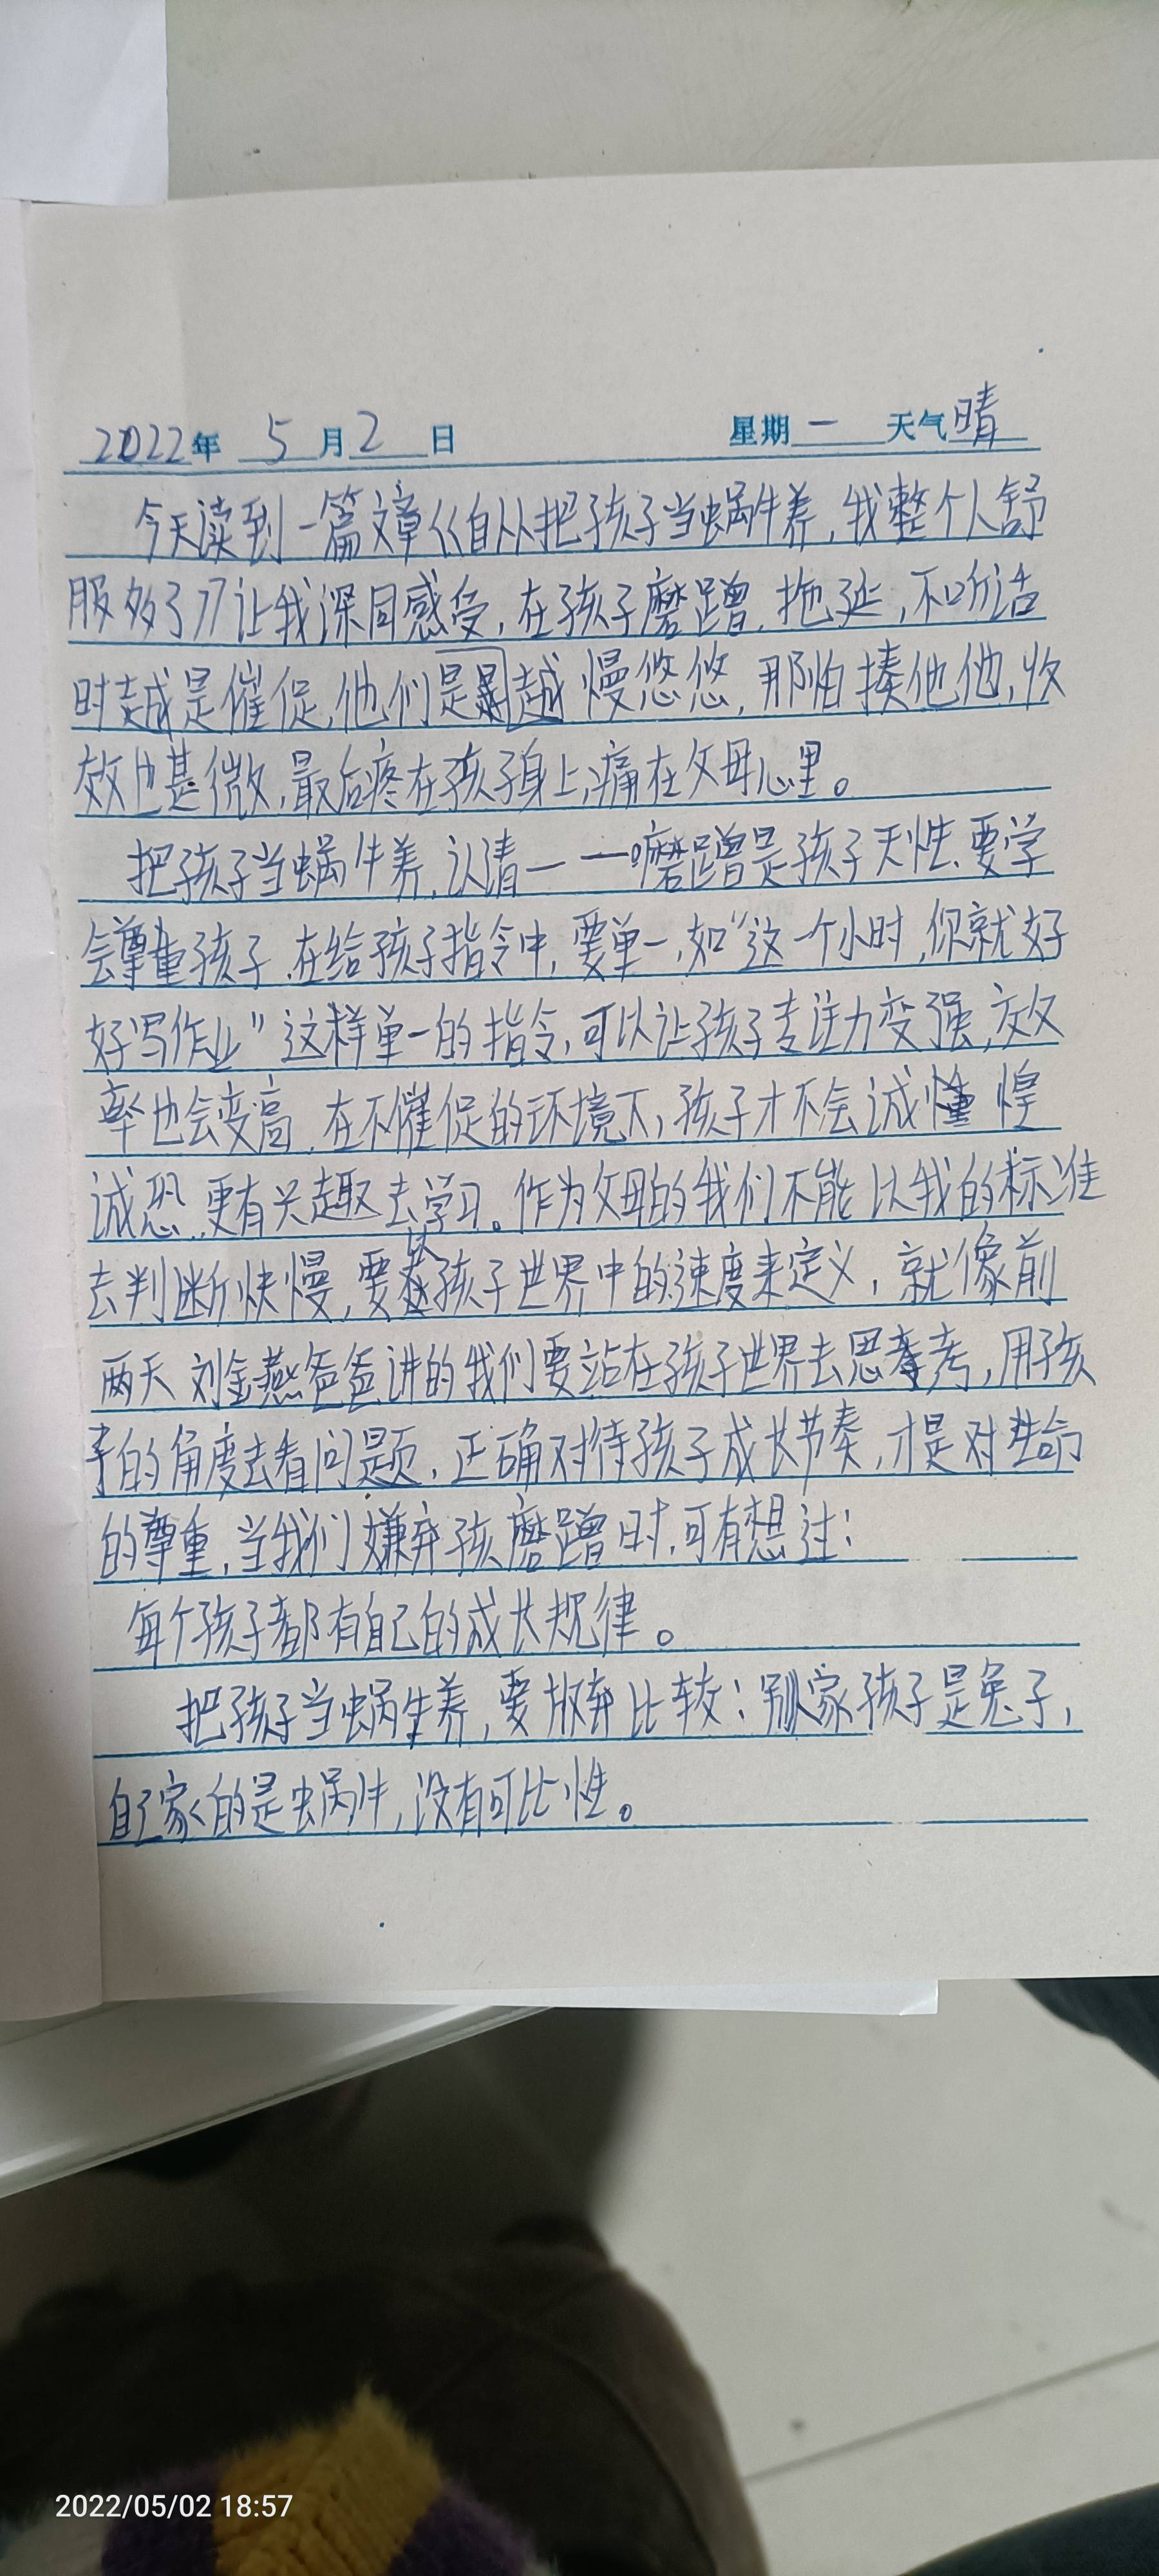 2022年 5月2日 星期一 天气晴
今天读到一篇文章《自从把孩子当蜗牛养,我整个人舒
服多了》让我深同感受,在孩子磨蹭、拖延,不听话
时越是催促,他们是越慢悠悠,那怕揍他他,收
效也甚微,最后疼在孩子身上,痛在父母心里。
把孩子当蜗牛养,认清一一磨蹭是孩子天性、要学
会尊重孩子、在给孩子指令中,要单一,如“这一个小时,你就好
好写作业”这样单一的指令,可以让孩子专注力变强,效
率也会变高、在不催促的环境下,孩子才不会诚惶
诚恐、更有兴趣去学习。作为父母的我们不能以我的标准
去判断快慢,要基孩子世界中的速度来定义,就像前
两天刘金燕爸爸讲的我们要站在孩子世界去思考,用孩
子的角度去看问题,正确对待孩子成长节奏,才是对生命
的尊重,当我们嫌弃孩磨蹭时,可有想过:
每个孩子都有自己的成长规律。
把孩子当蜗牛养,要放弃比较:别家孩子是兔子,
自己家的是蜗牛,没有可比性。
2022/05/02 18:57